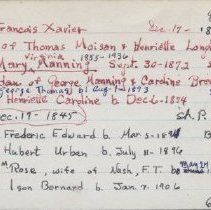 Francois Xavier Dec-17- 18
of Thomas Moisan & Henrielle Lang
Virginia 1855-1936
Mary Manning Sept. 30-1872
dau. of George Manning & Caroline Bro
George Thomas b Aug-1-1873
Henrielle Caroline b Dec-6-1874
Dec.-17-1845 St. P.
Frederic Edward b. Mar 5-18
Hubert Urban b. July 11-1896
Rose, wife of Nash, F.T. b May 24
Leon Bernard b. Jan. 7-1906